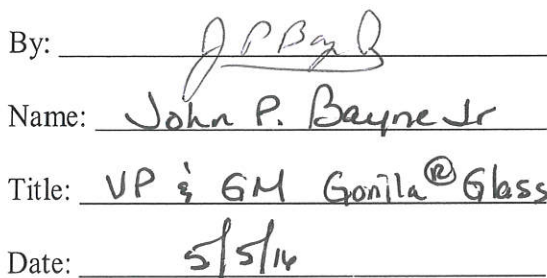 By: J P Bay
Name: John P. Bayne Jr
Title: VP & GM Gorilla® Glass
Date: 5/5/16